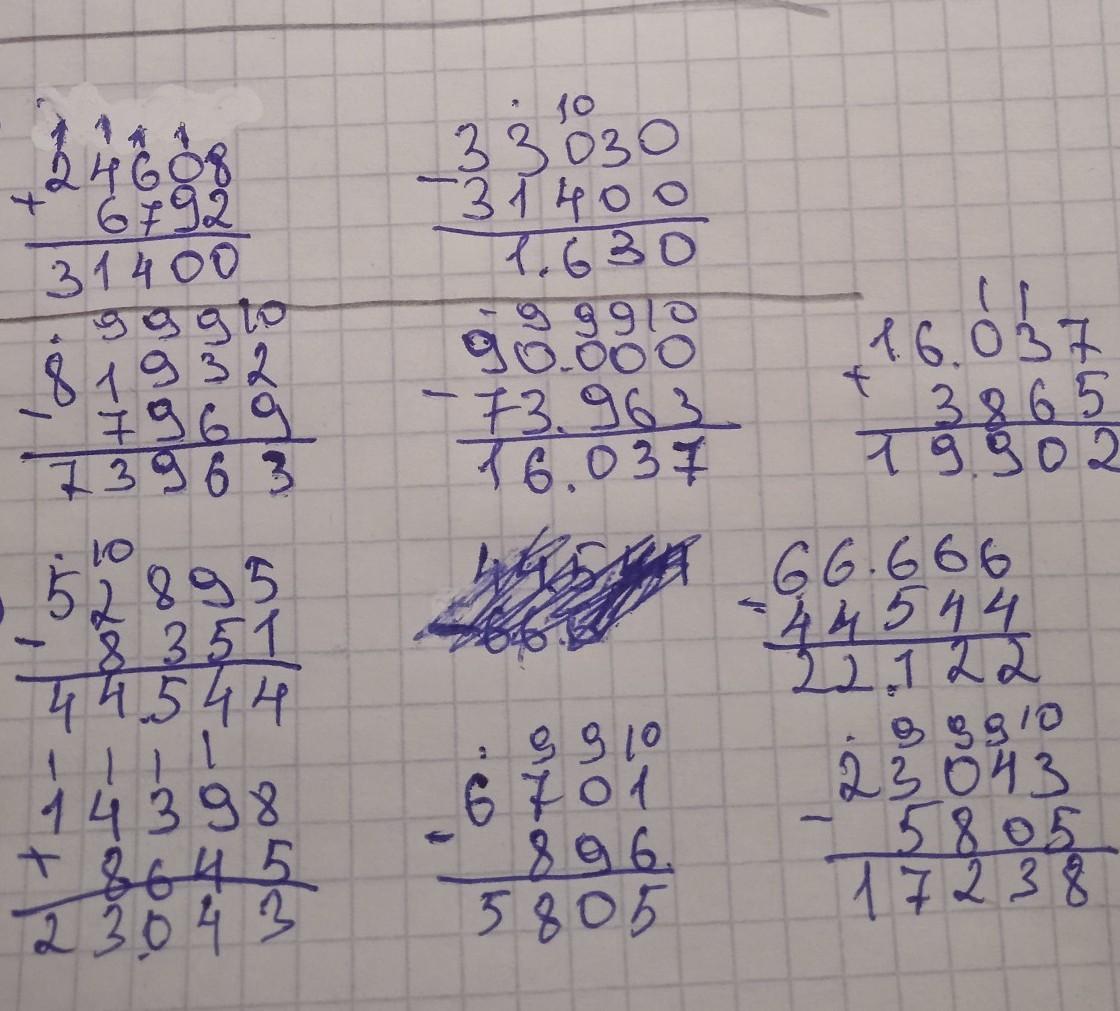 1 1 1 1
24608
+ 6792
31400
10
33030
- 31400
1.630
9 9 9 10
81932
- 7969
73963
9 9 9 10
90.000
- 73.963
16.037
1 1
16.037
+ 3865
19.902
10
52895
- 8351
44.544
66.666
- 44544
22.122
1 1 1 1
14398
+ 8645
23.043
9 9 10
6701
- 896
5805
9 9 9 10
23043
- 5805
17238